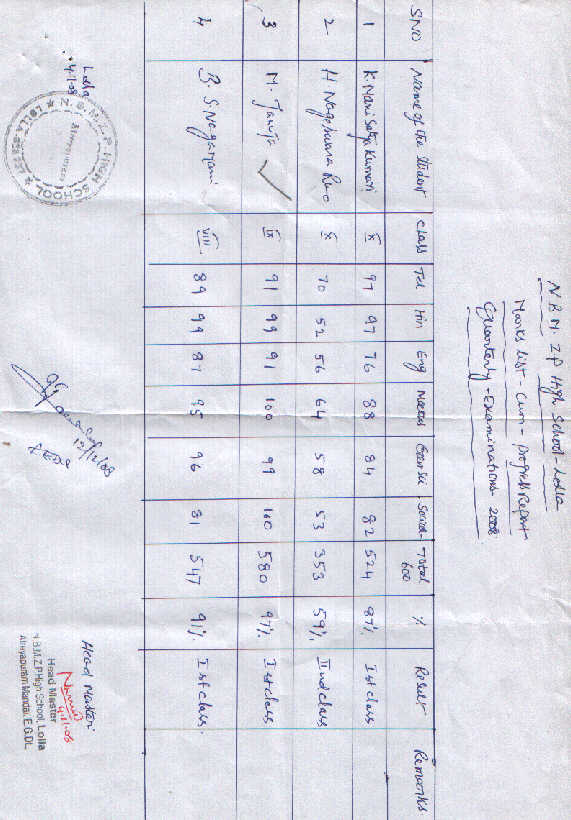 N B M. Z.P High School - Lolla
Marks list - Cum - Progress Report
Quarterly - Examinations - 2008
SNO Name of the Student Class Tel Hin Eng Maths Social Total 600 % Result Remarks
1 K. Mani Satya Kumari X 97 97 76 88 84 82 524 87% Ist class
2 H Nageswara Rao X 70 52 56 64 58 53 353 59% IInd class
3 M. IX 91 99 91 100 99 100 580 97% Ist class
4 B. S Nagamani VIII 89 99 87 95 96 81 547 91% Ist class.
Lolla
HIGH SCHOOL ★ LOLLA
Head Master
Head Master
N.B.M.Z.P.High School, Lolla
Atreyapuram Mandal, E.G.Dt.